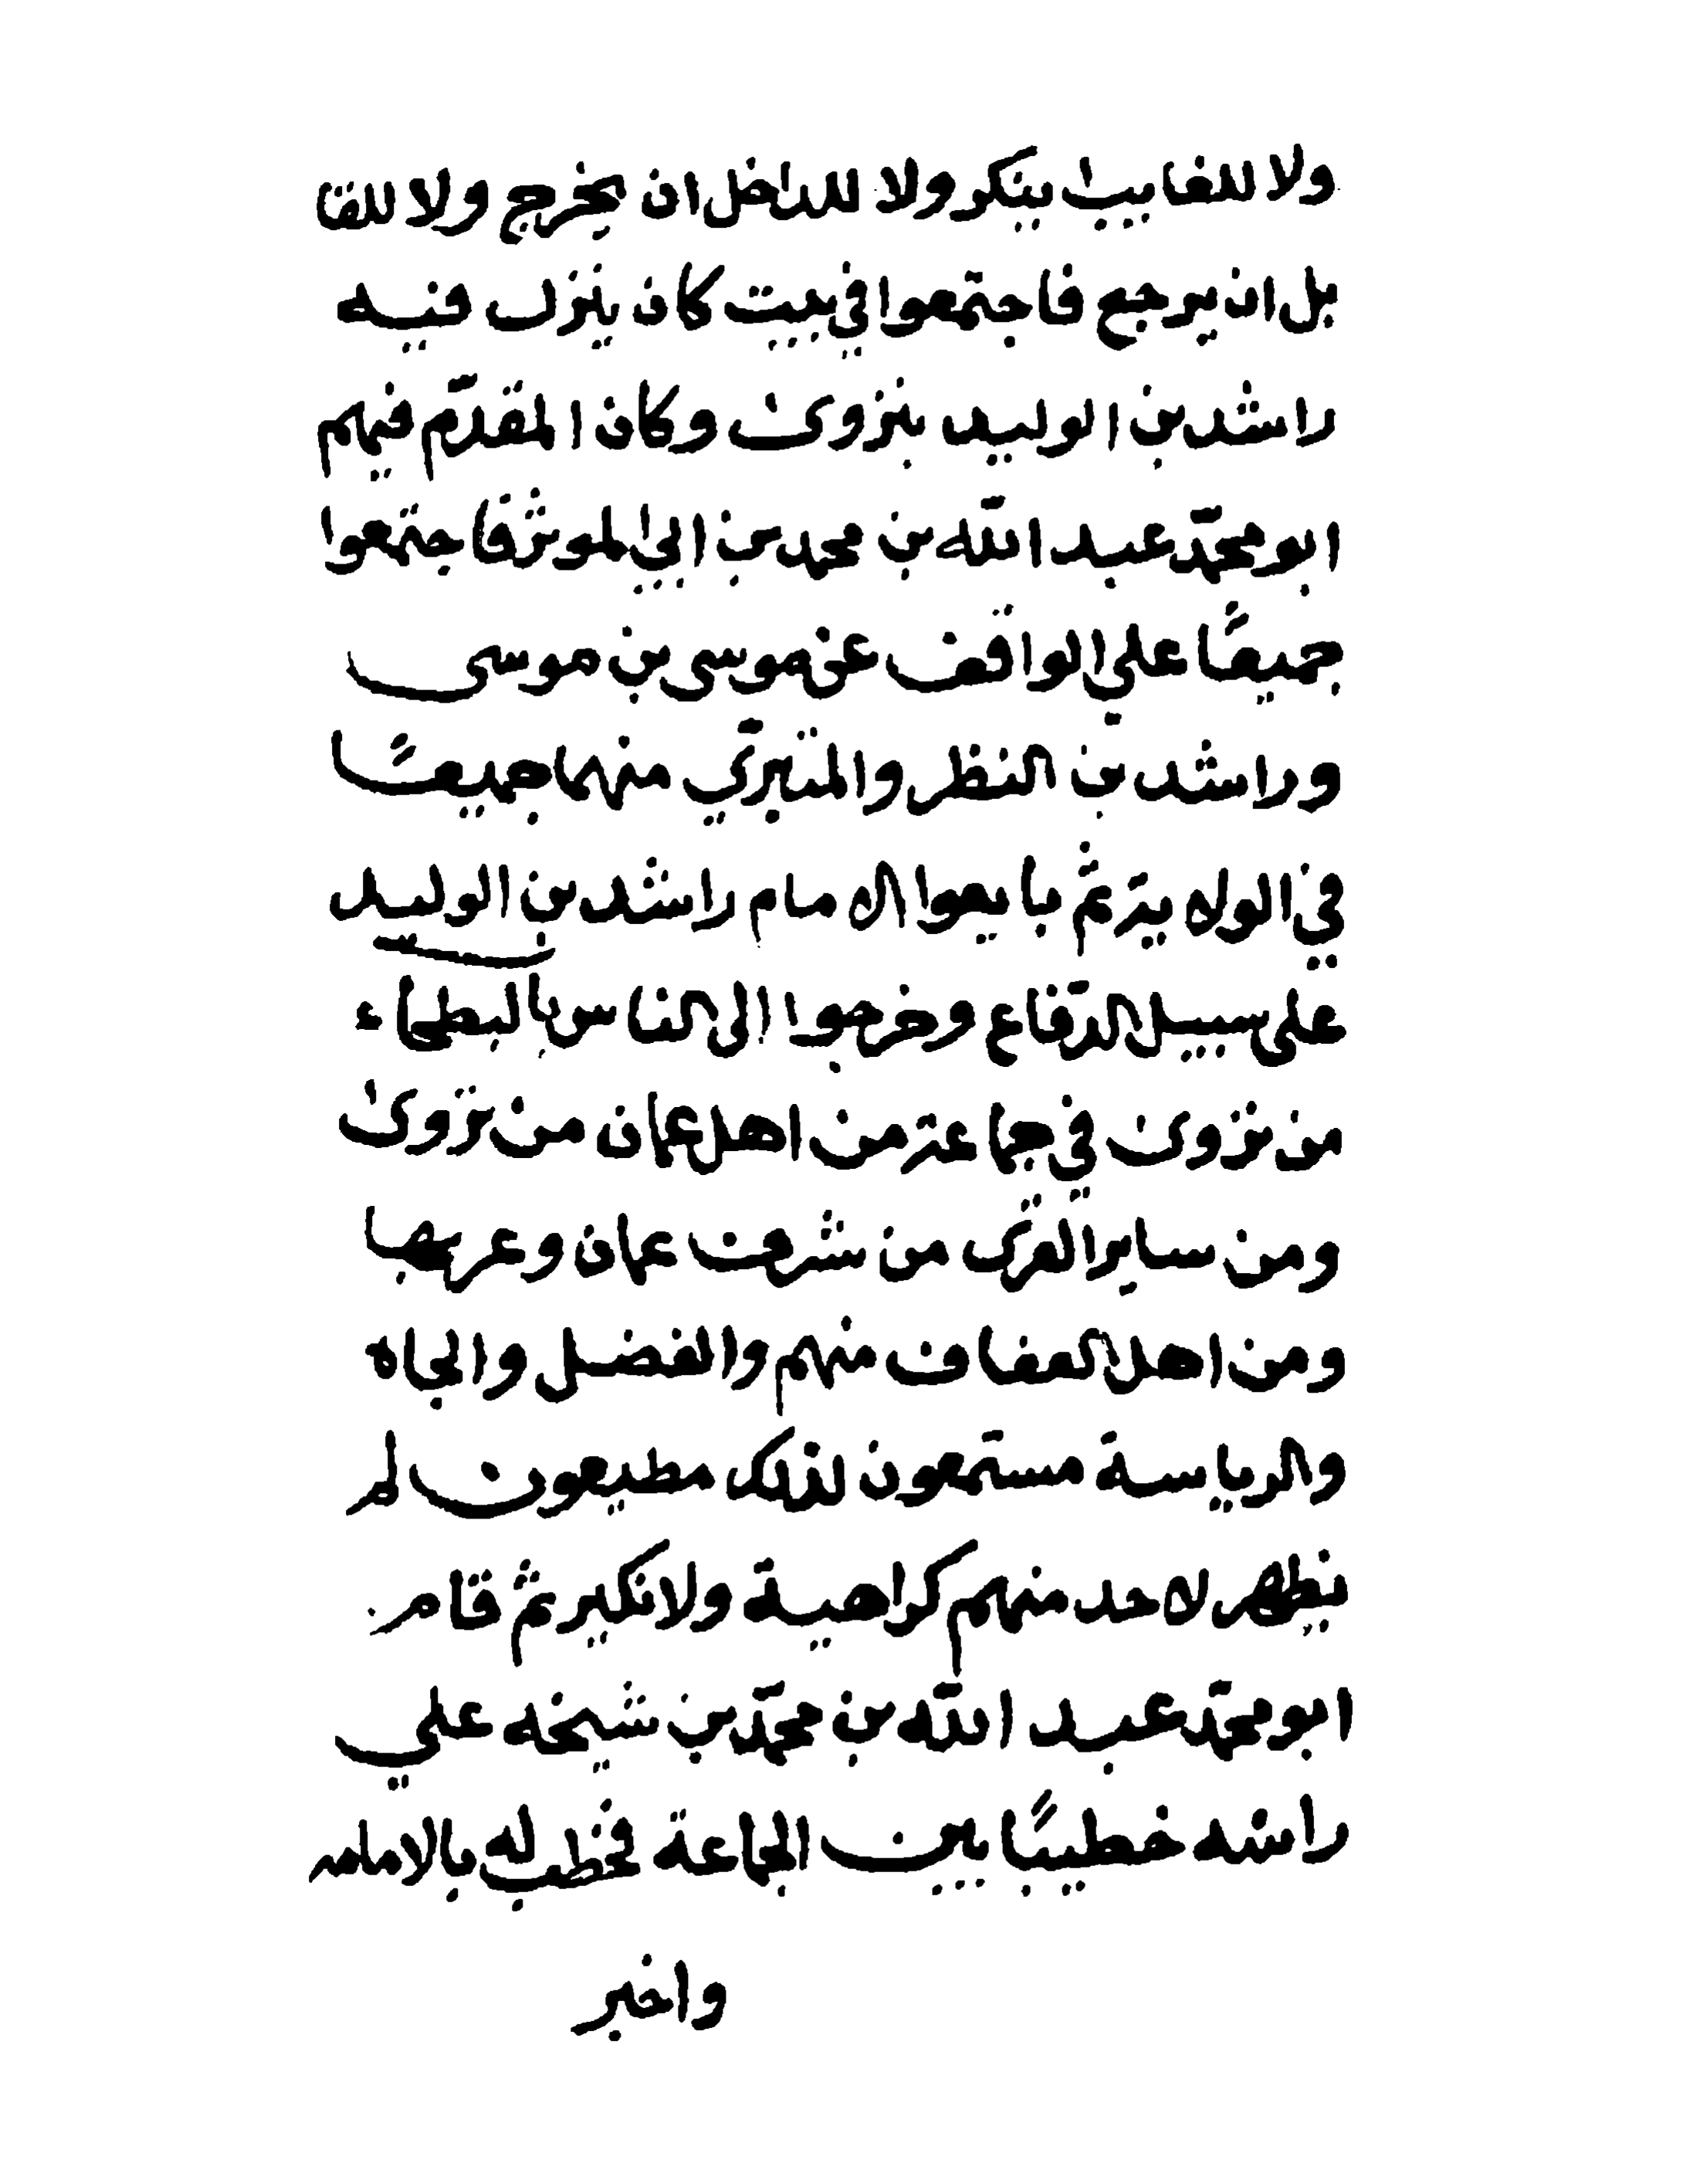 ولا للغايب ينكر ولا للداخل ان يخرج ولا للقا
بل ان يرجع فاجتمعوا في بيت كان ينزل فيه
راشد بن الوليد بنزوى وكان المقدّم فيهم
ابو محمّد عبد الله بن محمد بن ابي الموثر فاجتمعوا
جميعًا علي الواقف عن موسى بن موسى
وراشد بن النظر والمتبرّي منهما جميعًا
في الولاية ثم بايعوا الامام راشد بن الوليد
على سبيل الدّفاع وخرجوا الى الناس بالبطحاء
من نزوى في جماعة من اهل عمان من نزوى
ومن ساير القرى من شرق عمان وغربها
ومن اهل العفاف منهم والفضل والجاه
والرياسة مستمعون لذلك مطيعون لم
يظهر لاحد منهم كراهية ولا نكير ثم قام
ابو محمّد عبد الله بن محمّد بن شيخه علي
راسه خطيبًا بين الجماعة فخطب له بالامامه
واخبر